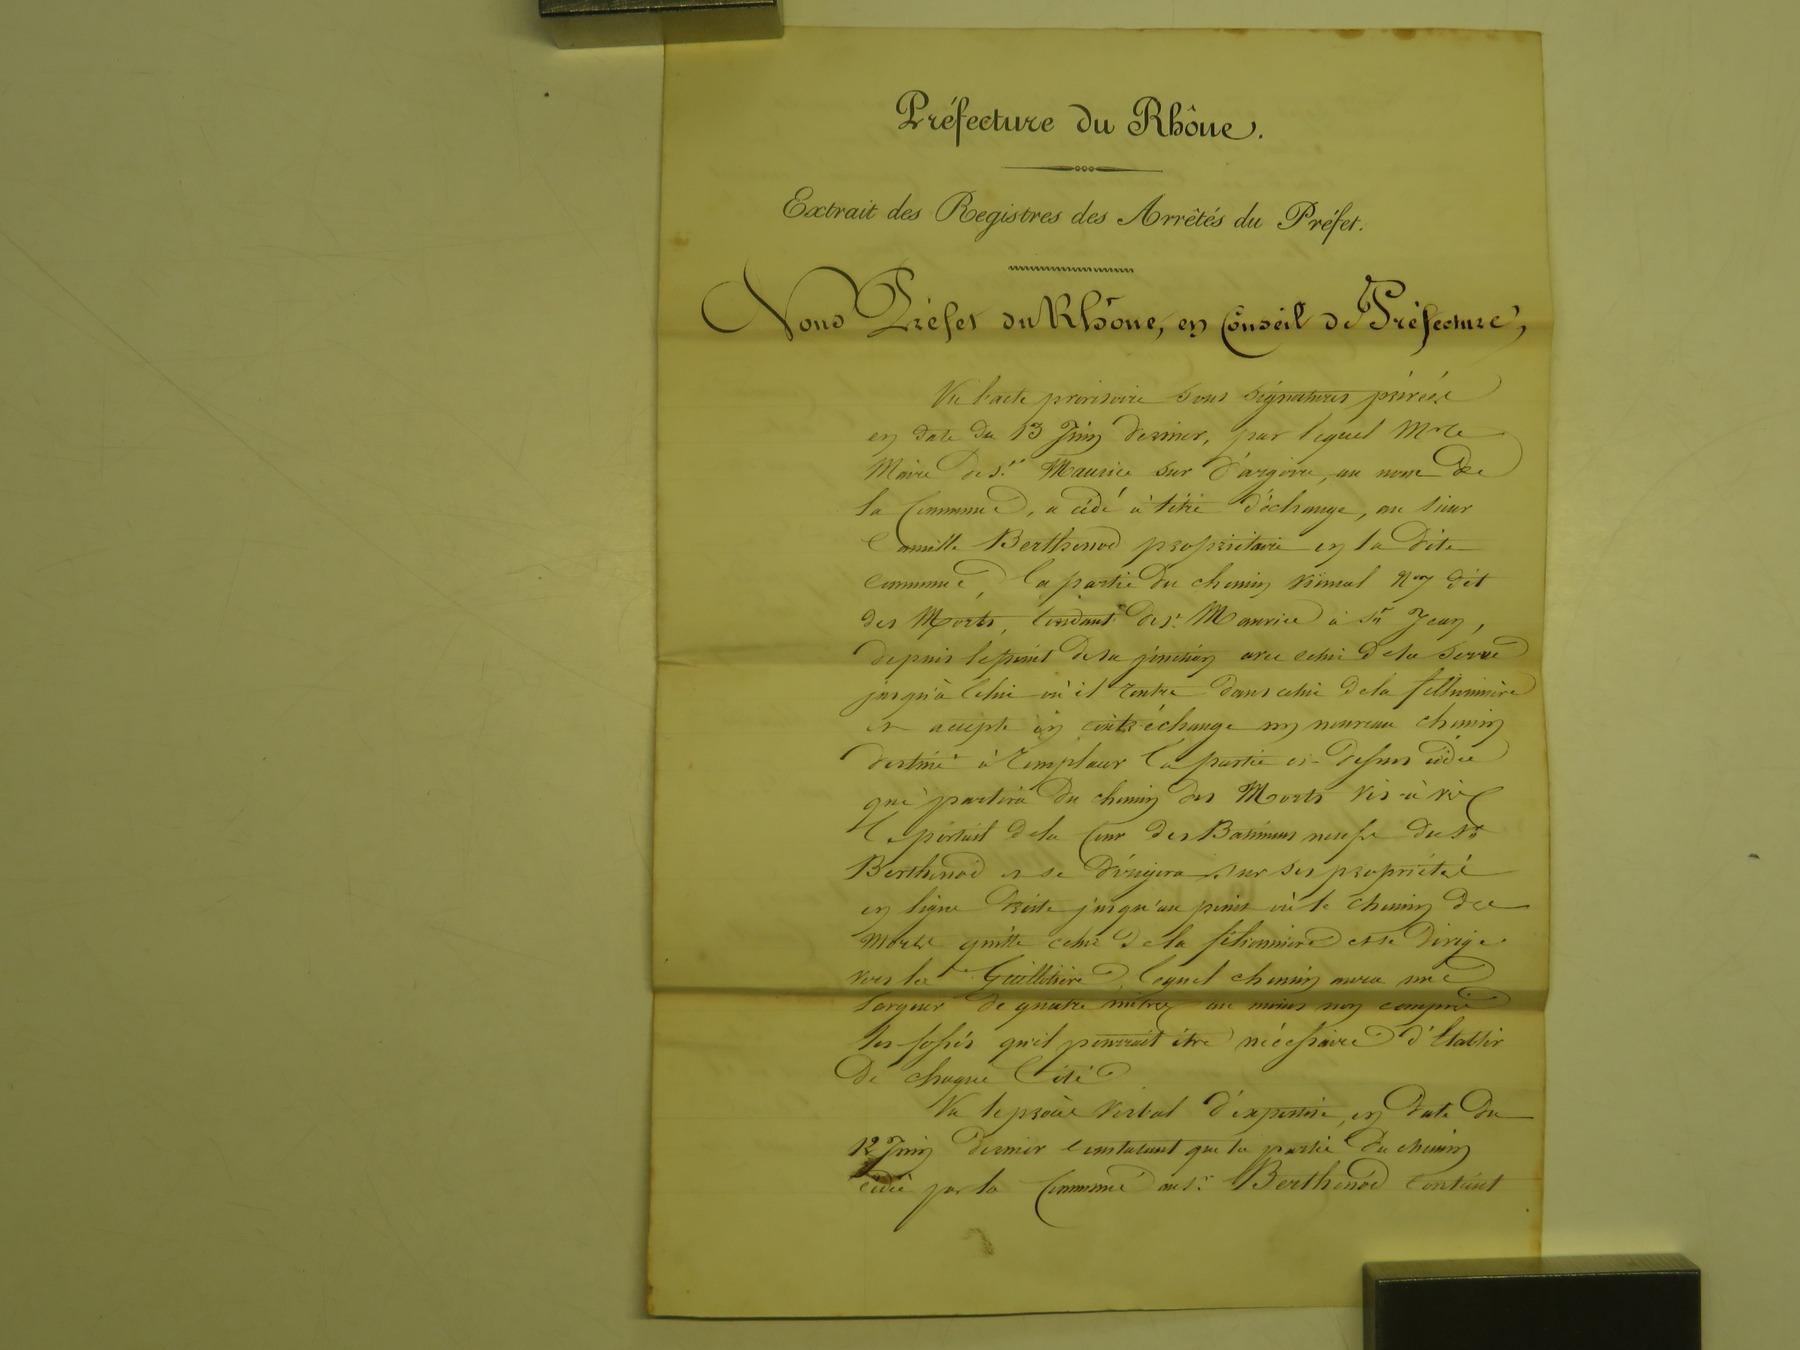 Préfecture du Rhône.
Extrait des Registres des Arrêtés du Préfet.
Nous Préfet du Rhône, en Conseil de Préfecture,
Vu l'acte provisoire sous signatures privées
en date du 13 Juin dernier, par lequel Mr le
Maire de St Maurice sur d'argoire, au nom de
la Commune, a cédé à titre d'échange, au sieur
Camille Berthenod propriétaire en la dite
commune, la partie du chemin vicinal dit
des Morts, tendant de St Maurice à St Jean,
depuis le point de sa jonction avec celui de la Serve
jusqu'à celui où il rentre dans celui de la
et accepte en contr'échange un nouveau chemin
destiné à remplacer la partie ci-dessus cédée
qui partira du chemin des Morts vis-à-vis
le portail de la Cour des Batimens neufs du Sr
Berthenod et se dirigera sur ses propriétés
en ligne droite jusqu'au point où le chemin des
Morts quitte celui de la et se dirige
vers la lequel chemin aura une
largeur de quatre mètres au moins non compris
les fossés qu'il pourrait être nécessaire d'établir
de chaque côté
Vu le procès verbal d'expertise, en date du
12 Juin dernier constatant que la partie du chemin
cédée par la Commune au Sr Berthenod contient